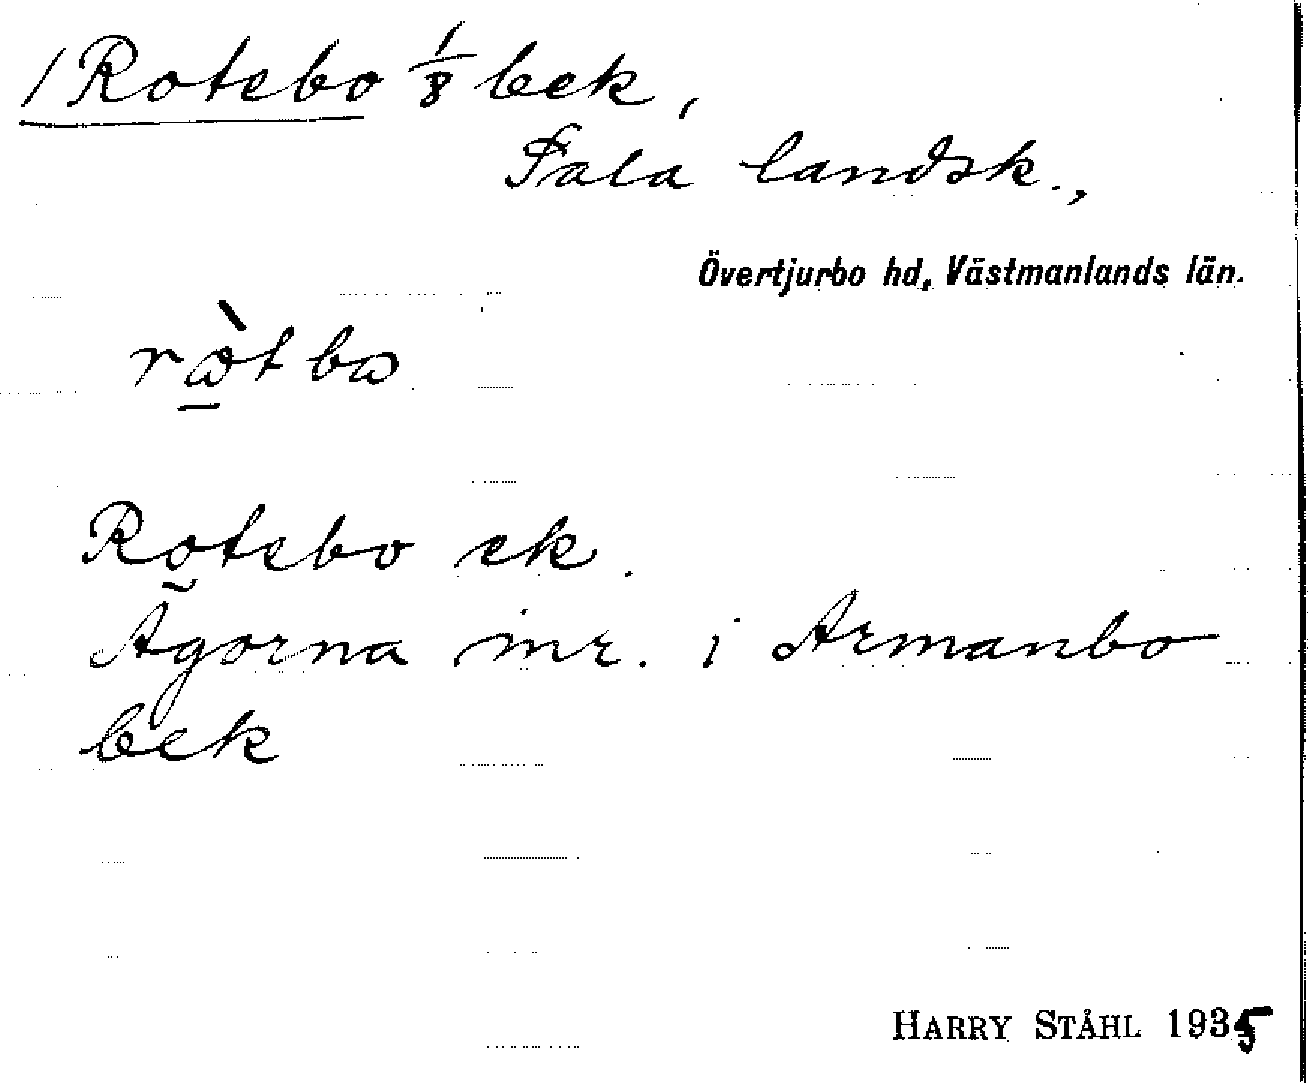 /Rotebo 1/8 bek,
Sala landsk.,
Övertjurbo hd, Västmanlands län.
Rotebo ek.
Ägorna inr. i Armanbo
bek
HARRY STÅHL 1935